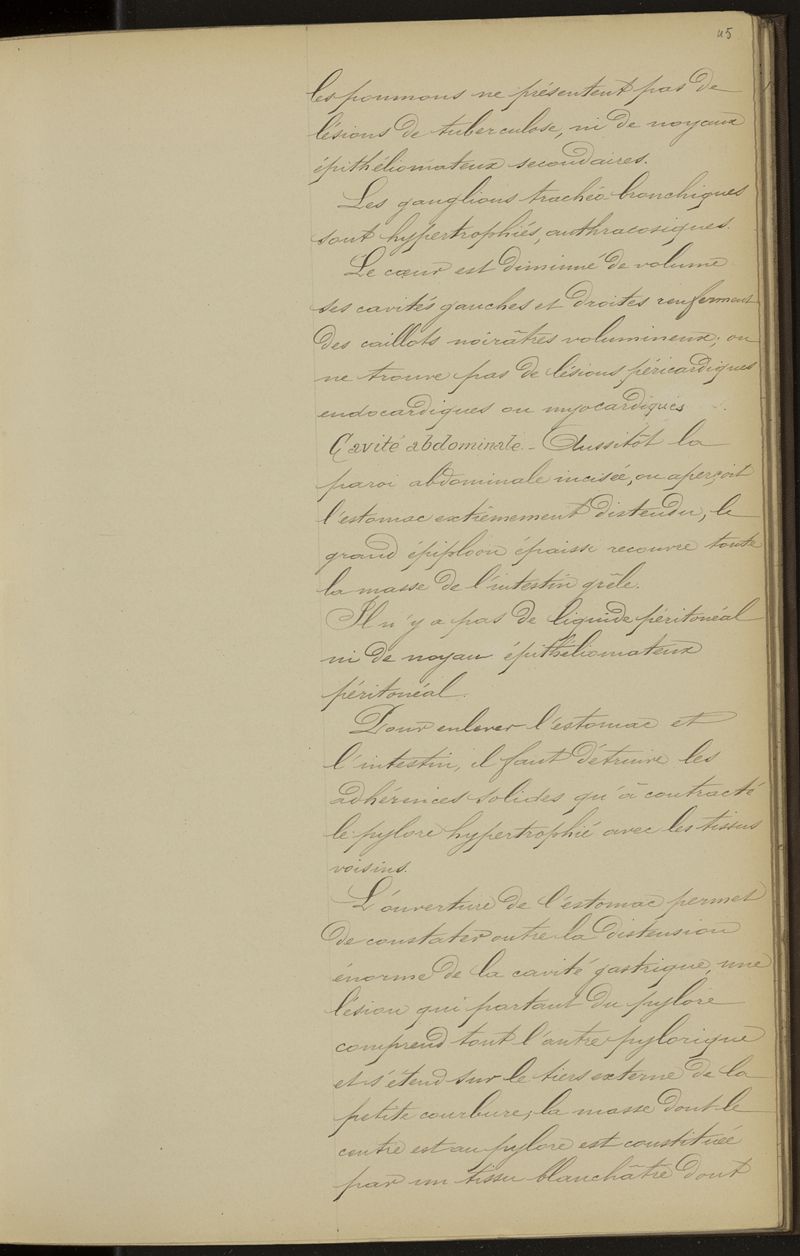 45
les poumons ne présentent pas de
lésions de tuberculose, ni de noyaux
épithéliomateux secondaires.
Les ganglions trachéo-bronchiques
sont hypertrophiés, anthracosiques.
Le cœur est diminué de volume
ses cavités gauches et droites renferment
des caillots noirâtres volumineux; on
ne trouve pas de lésions péricardiques
endocardiques ou myocardiques
Cavité abdominale - Aussitôt la
paroi abdominale incisée, on aperçoit
l'estomac extrêmement distendu, le
grand épiploon épaissi recouvre toute
la masse de l'intestin grêle.
Il n'y a pas de liquide péritonéal
ni de noyau épithéliomateux
péritonéal.
Pour enlever l'estomac et
l'intestin, il faut détruire les
adhérences solides qu'à contracté
le pylore hypertrophié avec les tissus
voisins.
L'ouverture de l'estomac permet
de constater outre la distension
énorme de la cavité gastrique, une
lésion qui partant du pylore
comprend tout l'antre pylorique
et s'étend sur le tiers externe de la
petite courbure; la masse dont le
centre est au pylore est constituée
par un tissu blanchâtre dont